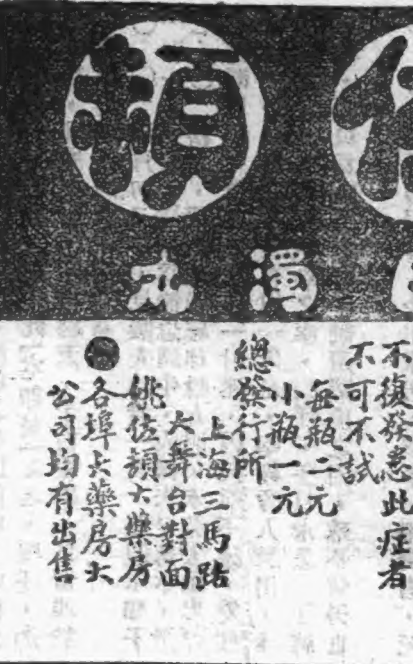 頓
濁丸
不復發患此症者
不可不試
每瓶二元
小瓶一元
總發行所
上海三馬路
大舞台對面
姚佐頓大藥房
各埠大藥房大
公司均有出售